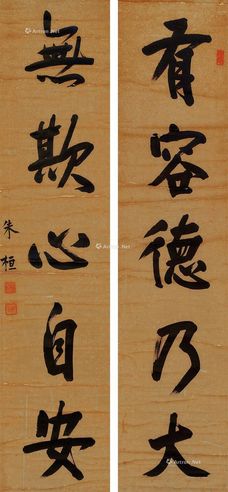 有容德乃大
無欺心自安
朱桓
Artron.Net
Artron.Net
Artron.Net
Artron.Net